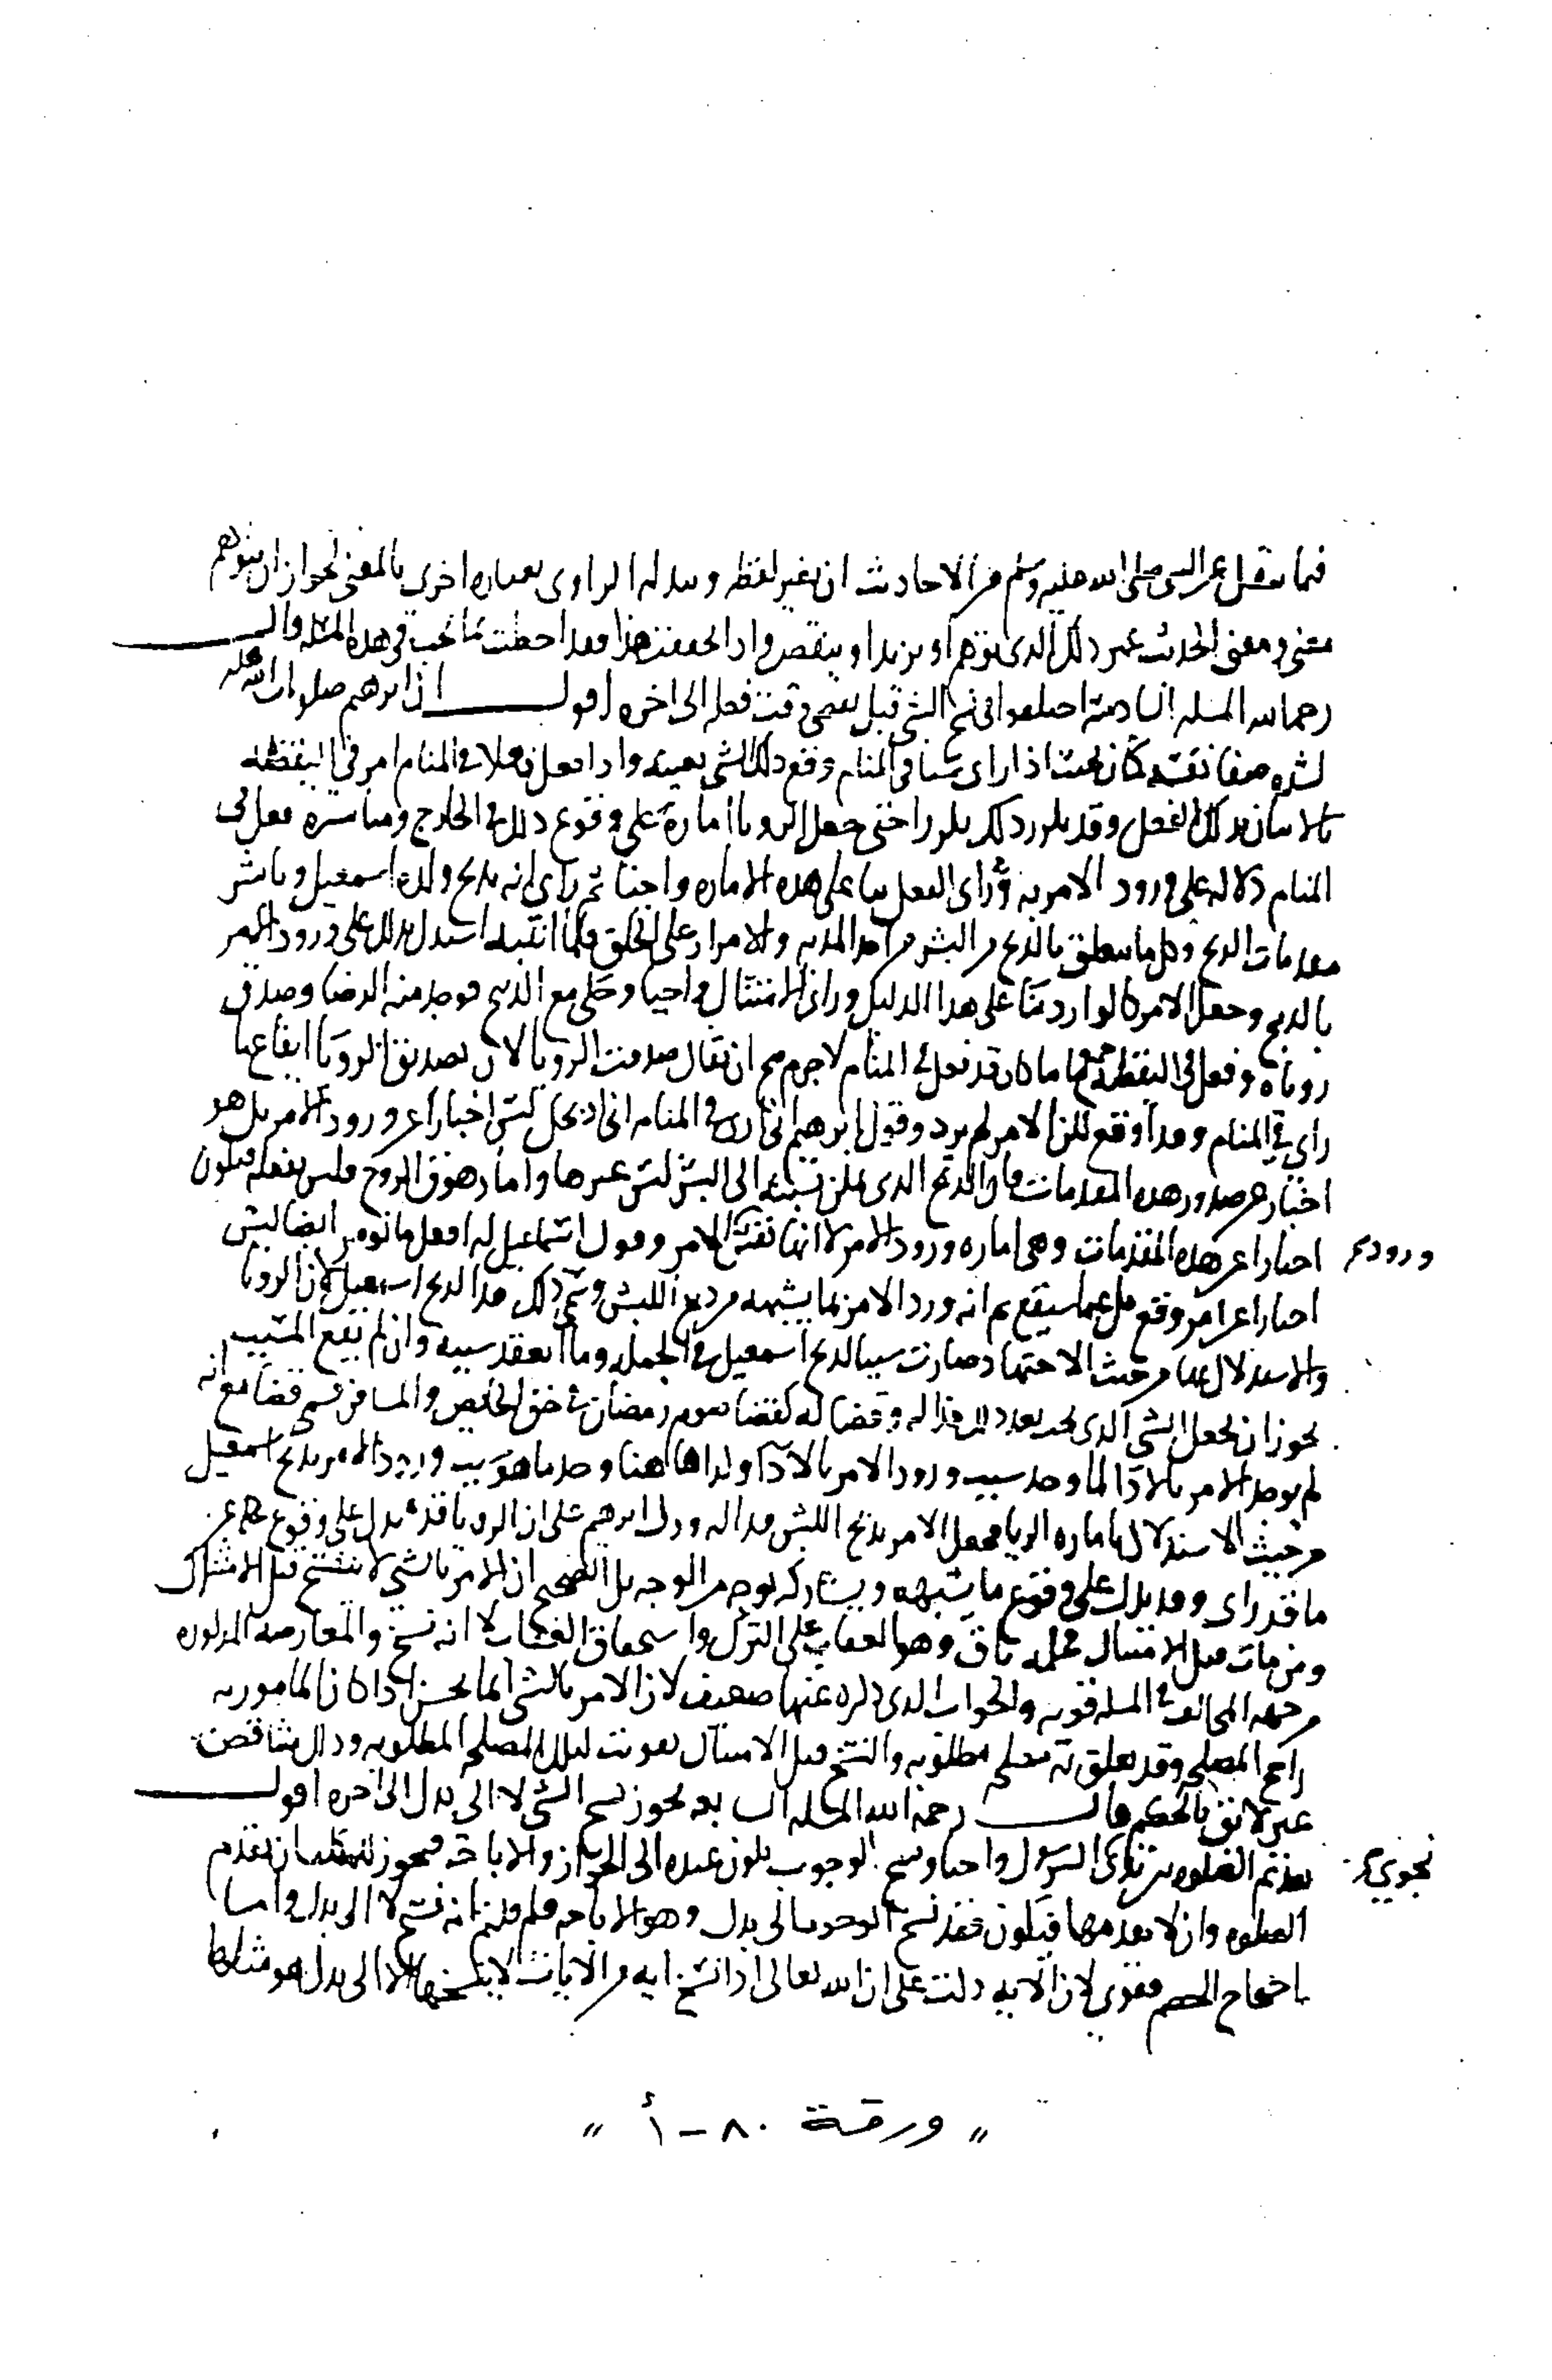 فيما ينقل عن النبي صلى الله عليه وسلم من الاحاديث ان يغير لفظه ويبدله الراوى بعبارة اخرى بالمعنى لجواز ان يتوهم
معنى ومعنى الحديث غير ذلك الذى توهم او يزيد او ينقص واذا تحققت هذا فقد احطت بما يجب فى هذه المسله قال
رحمه الله المسله السادسة اختلفوا فى نسخ الشى قبل مضى وقت فعله الى اخره اقول ان ابرهيم صلوات الله عليه
لشده صفا نفسه كان بحيث اذا راى شيا فى المنام وقع ذلك الشى بعينه واذا فعل فعلا فى المنام امر فى اليقظه
بالاتيان بذلك الفعل وقد تكرر ذلك تكررا حتى جعل الرويا امارة على وقوع ذلك فى الخارج ومباشره فعل فى
المنام دلاله على ورود الامر به وراى الفعل بنا على هذه الاماره واجبا ثم راى انه يذبح ولده اسمعيل وباشر
مقدمات الذبح وكل ما يتعلق بالذبح من البشر من اخذ المديه والامرار على الحلق فلما انتبه استدل بذلك على ورود الامر
بالذبح وجعل الامر كالوارد بنا على هذا الدليل وراى الامتثال واجبا وحكى مع الذبيح فوجد منه الرضا وصدق
روياه وفعل فى اليقظه جميع ما كان قد فعل فى المنام لا جرم صح ان يقال صدقت الرويا لان تصديق الرويا ايقاع ما
راى فى المنام وقد اوقع لكن الامر لم يرد وقول ابرهيم انى ارى فى المنام انى اذبحك ليس اخبارا عن ورود الامر بل هو
اخبار عن صدور هذه المقدمات فان الذبح الذى يمكن نسبته الى البشر ليس غيرها واما زهوق الروح فليس بفعله فيكون
اخبارا عن هذه المقدمات وهى اماره ورود الامر لا انها نفس الامر وقول اسماعيل له افعل ما تومر ايضا ليس
ورود
اخبارا عن امر وقع بل عما سيقع ثم انه ورد الامر بما يشبهه من ذبح الكبش وسمى ذلك فدا لذبح اسمعيل لان الرويا
والاستدلال بها من حيث الاجتهاد صارت سببا لذبح اسمعيل فى الجمله وما انعقد سببه وان لم يقع المسبب
يجوز ان يجعل الشى الذى يجب بعد ذلك فدا له وقضا له كقضا صوم رمضان فى حق الحائض والمسافر سمى قضا مع انه
لم يوجد الامر بالادا لما وجد سبب ورود الامر بالادا وكذا هاهنا وجد ما هو سبب ورود الامر بذبح اسمعيل
من حيث الاستدلال باماره الرويا فجعل الامر بذبح الكبش فدا له ودل ابرهيم على ان الرويا قد يدل على وقوع عين
ما قد راى وقد يدل على وقوع ما يشبهه من الوجه بل الصحيح ان الامر بالشى لا ينسخ قبل الامتثال
ومن مات قبل الامتثال فحكمه باق وهو العقاب على الترك واستحقاق العقاب لا انه نسخ والمعارضة المذكوره
من جهه المخالف فى المسله قويه والجواب الذى ذكره عنها ضعيف لان الامر بالشى انما يحسن اذا كان المامور به
راجح المصلحه وقد تعلق به مصلحه مطلوبه والنسخ قبل الامتثال تفويت لتلك المصلحه المطلوبه وذلك متناقض
غير لائق بالحكيم قال رحمه الله المسله السابعه يجوز نسخ الشى لا الى بدل الى اخره اقول
تقديم الصلوه بين يدى الرسول واجبا ونسخ الوجوب يكون عنده الى الجواز والاباحة فيجوز للمكلف ان يقدم
نجوى
الصلوه وان لا يقدمها فيكون فقد نسخ الوجوب الى بدل وهو الاباحه فلم قلتم انه نسخ لا الى بدل واما
احتجاج الخصم فقوى لان الايه دلت على ان الله تعالى اذا نسخ ايه من الايات لا ينسخها الا الى بدل هو مثلها
" ورقة ٨٠ - أ "